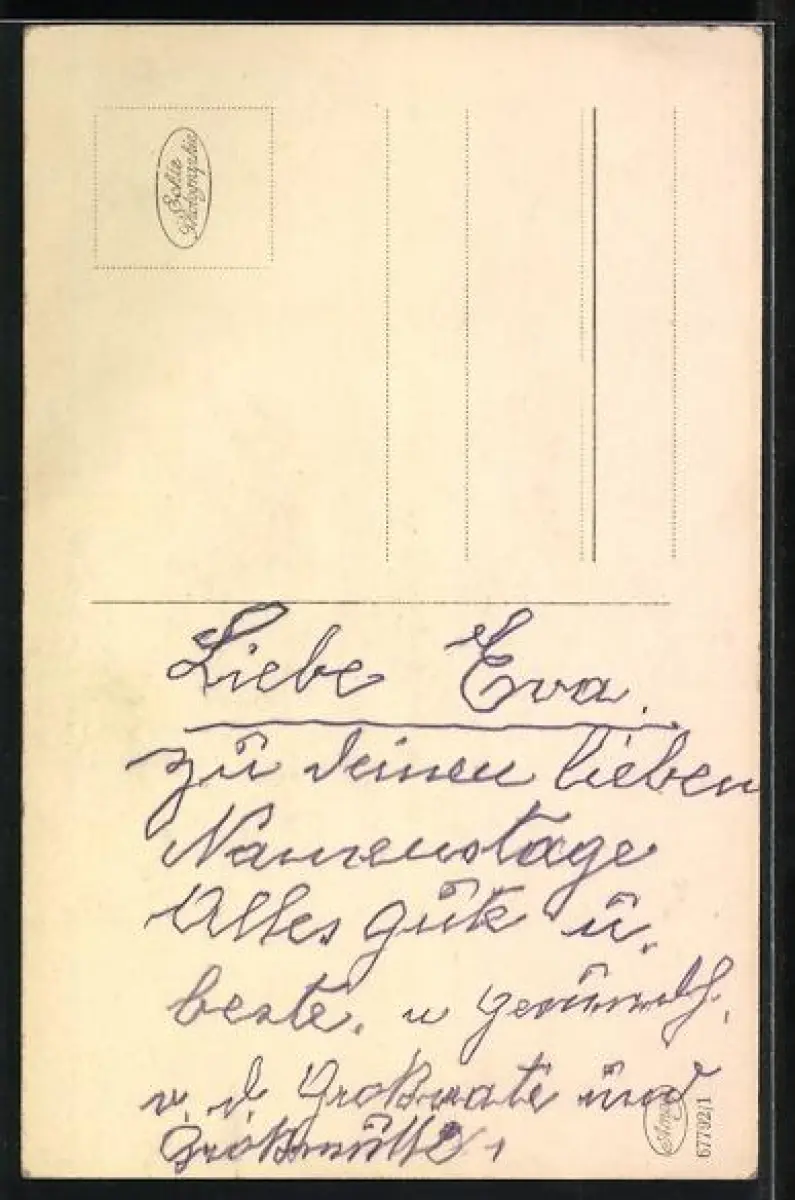 Echte
Photographie
Liebe Eva.
zu deinen lieben
Namenstage
Alles gute u.
beste. u
v. d. Großvate und
Großmutte
Amag
67792/1